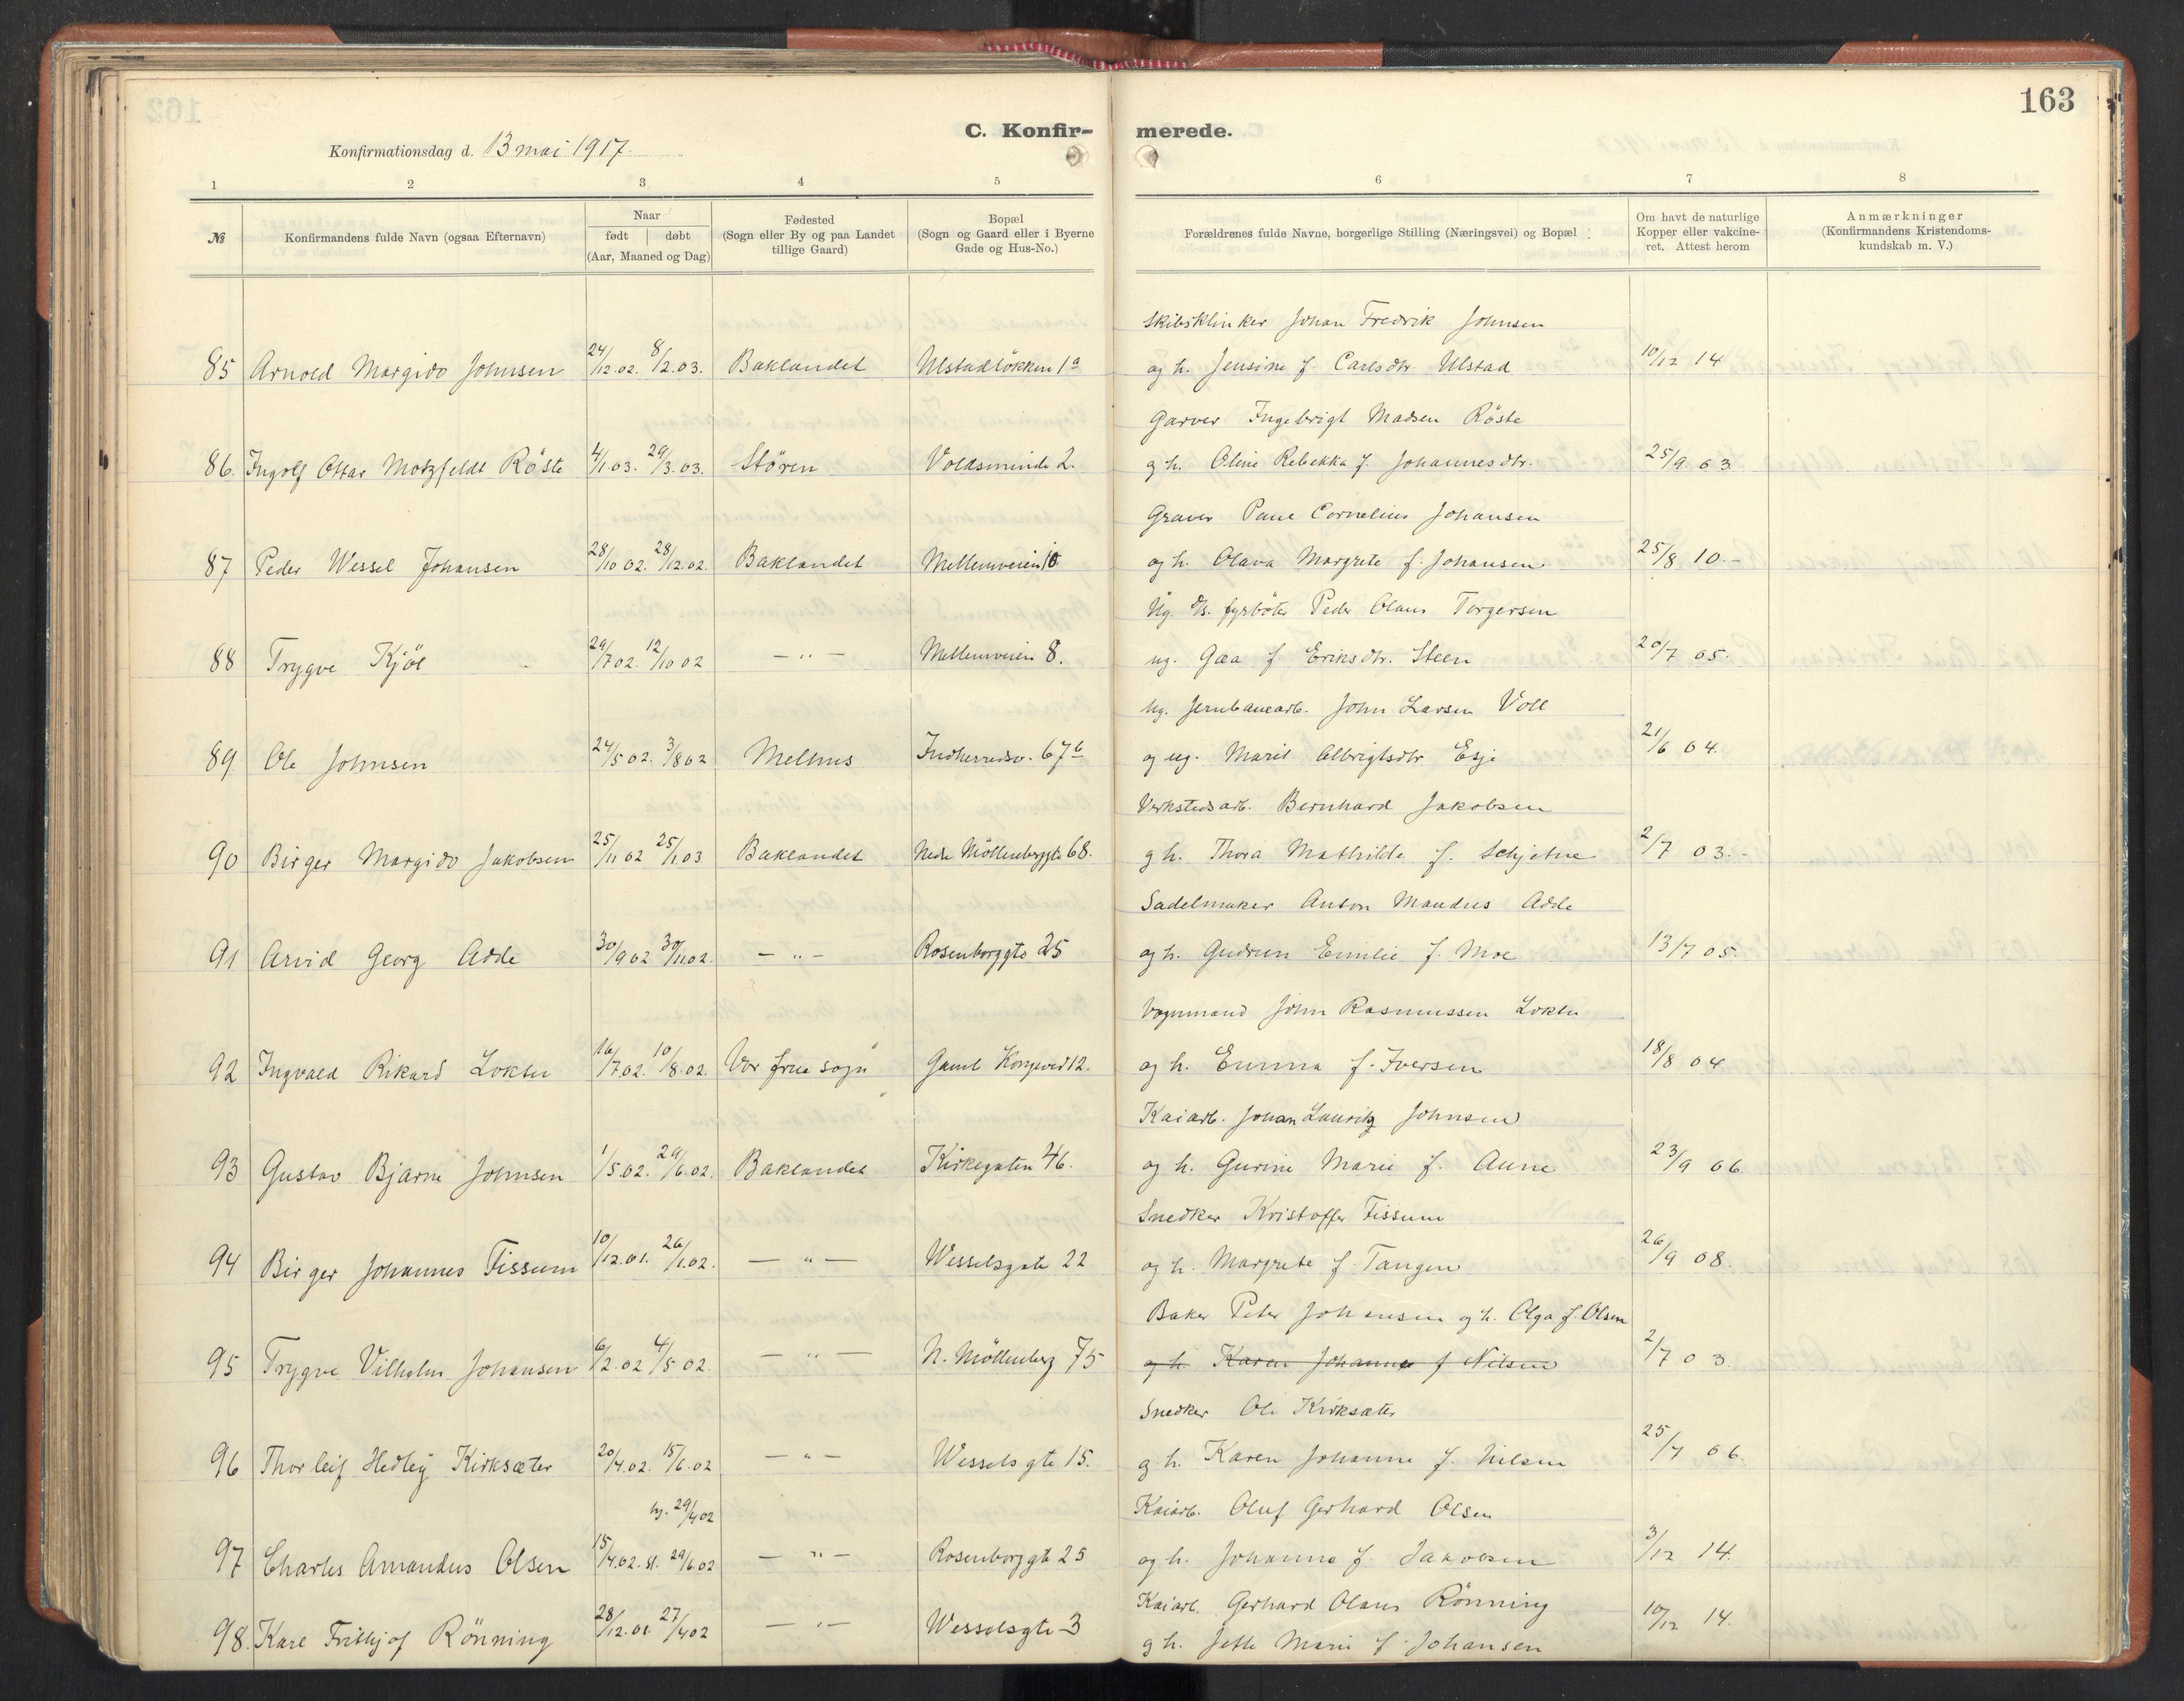 163
C. Konfir- merede.
Konfirmationsdag d. 13 mai 1917.
1 2 3 4 5 6 7 8
№
Konfirmandens fulde Navn (ogsaa Efternavn)
Naar
født | døbt
(Aar, Maaned og Dag)
Fødested
(Sogn eller By og paa Landet
tillige Gaard)
Bopæl
(Sogn og Gaard eller i Byerne
Gade og Hus-No.)
Forældrenes fulde Navne, borgerlige Stilling (Næringsvei) og Bopæl
Om havt de naturlige
Kopper eller vakcine-
ret. Attest herom
Anmærkninger
(Konfirmandens Kristendoms-
kundskab m. V.)
Skibsklinker Johan Fredrik Johnsen
85 Arnold Margido Johnsen 24/12.02. 8/2.03. Baklandet Ulstadløkken 1a og h. Jensine f. Carlsdtr. Ulstad 10/12 14
Garver Ingebrigt Madsen Röste
86. Ingolf Ottar Motzfeldt Röste 4/1.03. 29/3.03. Stören Voldsminde 2. g h. Oline Rebekka f. Johannesdtr. 25/9. 03.
Graver Paul Cornelius Johansen
87 Peder Wessel Johansen 28/10 02. 28/12.02. Baklandet Mellemveien 10 og h. Olava Margrete f. Johansen 25/8 10.-
Ug. d/s. fyrböter Peder Olaus Torgersen
88 Trygve Kjöl 29/7 02. 12/10 02 — „ — Mellemveien 8. ug. Gaa f. Eriksdtr. Steen 20/7 05.
Ug. Jernbanearb. John Larsen Voll
89 Ole Johnsen 24/5 02. 3/8 02 Melhus Indherredsv. 67b og ug. Marit Olbrigtsdtr Esje 21/6 04.
Verkstedsarb. Bernhard Jakobsen
90 Birger Margido Jakobsen 25/11 02 25/1 03 Baklandet Nedre Möllenberggt 68. g h. Thora Mathilde f. Schjetne 2/7 03.-
Sadelmaker Anton Mandius Adde
91 Arvid Georg Adde 30/9 02 30/11 02. — „ — Rosenborggte 25 og h. Gudrun Emilie f. Moe 13/7 05.
Vognmand John Rasmussen Lokken
92 Ingvald Rikard Lokken 16/7.02. 10/8.02. Vor frue sogn Gaml Kongevei 12. og h. Emma f. Iversen 18/8 04
Kaiarb. Johan Lauritz Johnsen
93 Gustav Bjarne Johnsen 1/5.02. 29/6.02. Baklandet Kirkegaten 46. og h. Gurine Marie f. Aune 23/9 06.
Snedker Kristoffer Fissum
94 Birger Johannes Fissum 10/12.01. 26/1.02. — „ — Wesselsgate 22 og h. Margrete f. Tangen 26/9 08.
Baker Peter Johansen g h. Olga f. Olsen
95 Trygve Vilhelm Johansen 6/2.02 4/5 02. — „ — N. Möllenberg 75 g h Karen Johanne f Nilsen 2/7 03.
Snedker Ole Kirksæter
96 Thorleif Hedley Kirksæter 20/4.02. 15/6.02 — „ — Wesselsgte 15. g h. Karen Johanne f. Nilsen 25/7 06.
hj. 29/4 02 Kaiarb. Oluf Gerhard Olsen
97 Charles Amandus Olsen 15/4.02. st. 29/6.02 — „ — Rosenborggt 25 og h. Johanna f. Jakobsen 3/12 14.
Kaiarb. Gerhard Olaus Rönning
98. Karl Frithjof Rönning 28/12.01. 27/4 02 — „ — Wesselsgte 3 g h. Jette Marie f. Johansen 10/12 14.